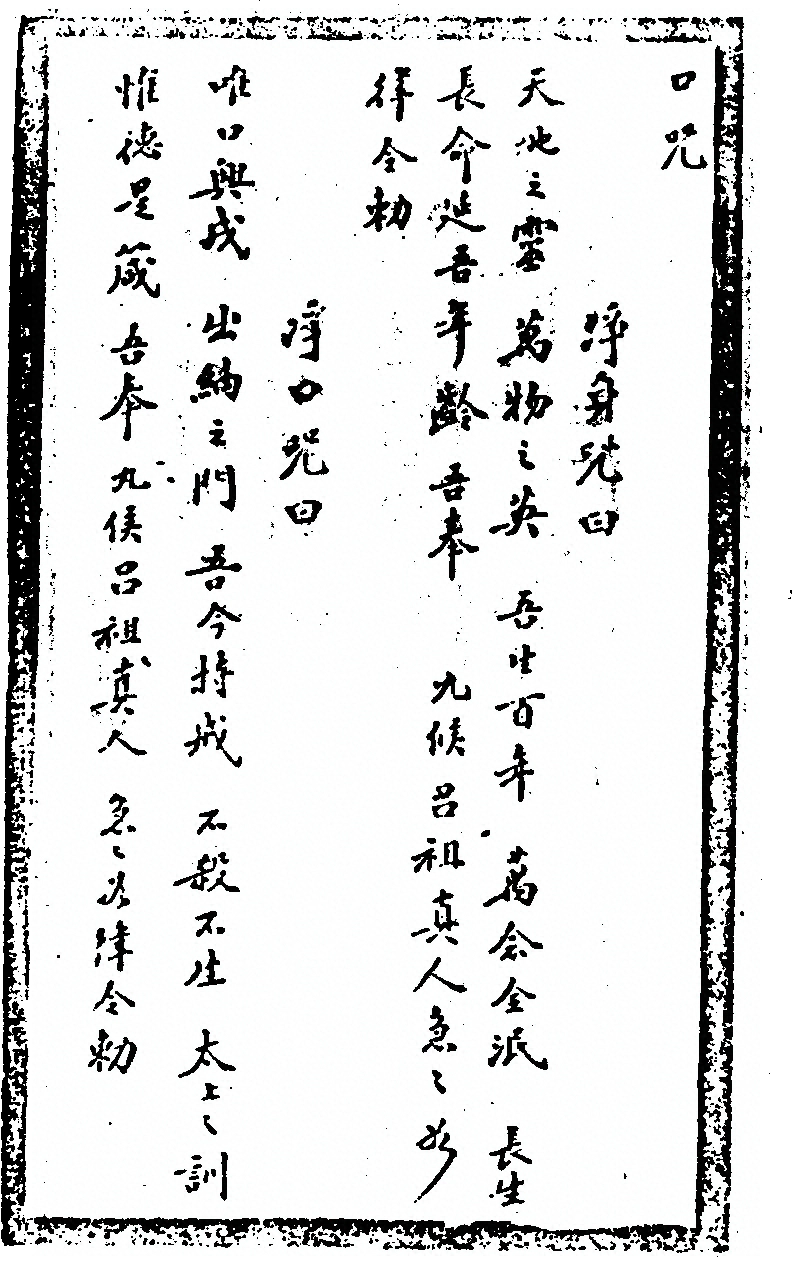 口咒
淨身咒曰
天地之靈 萬物之英 吾生百年 萬念全泯 長生
長命延吾年齡 吾奉 九候呂祖真人急々如
律令勅
淨口咒曰
唯口興戎 出納之門 吾今持戒 不殺不生 太上之訓
惟德是箴 吾奉九候呂祖真人 急々如律令勅